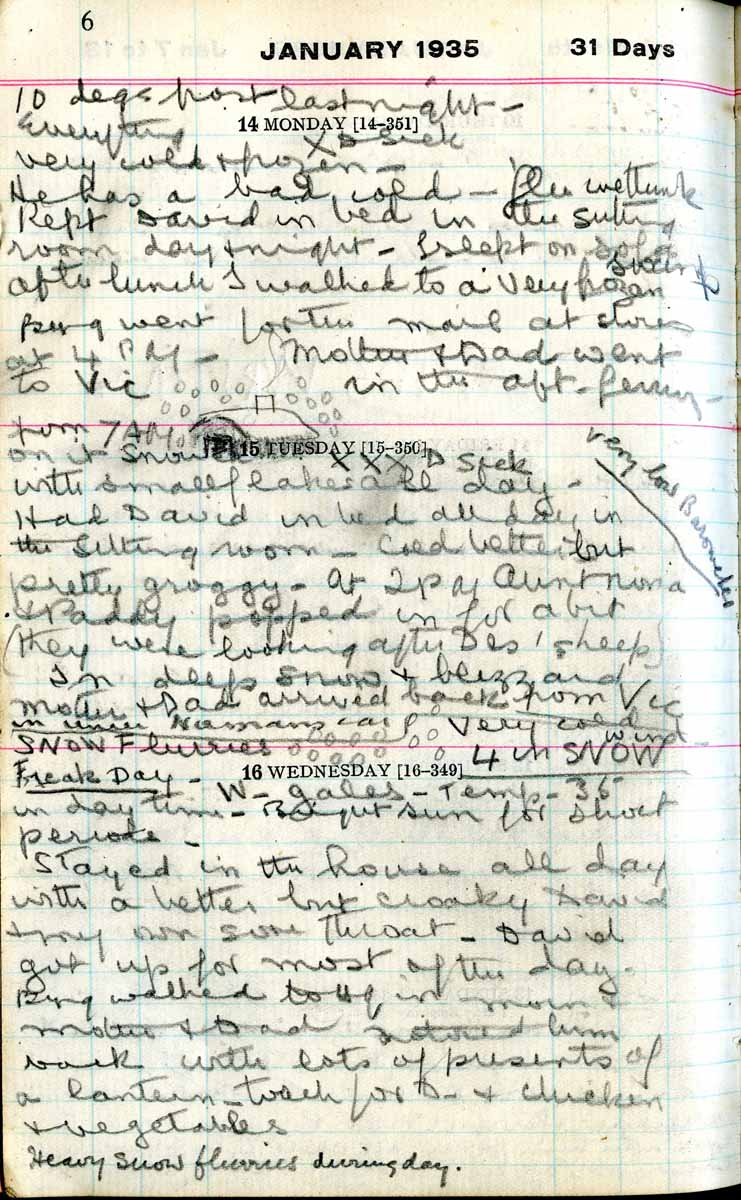 6
JANUARY 1935 31 Days
10 degs frost last night -
14 MONDAY [14-351]
Everything X D Sick
very cold & frozen -
He has a bad cold - flu
Kept David in bed in the sitting
room day & night - I slept on sofa
after lunch I walked to a very frozen
went for the mail at stores
at 4 PM - Mother & Dad went
to Vic in the aft. ferry -
from 7AM
15 TUESDAY [15-350]
on it Snowed X X X D Sick
with small flakes all day -
very low Barometer
Had David in bed all day in
the sitting room - Cold better but
pretty groggy - At 2 PM Aunt Nona
& Paddy popped in for a bit
(they were looking after Des' sheep)
In deep snow & blizzard
Mother & Dad arrived back from Vic
in car Very cold wind -
SNOW Flurries 4 in SNOW
16 WEDNESDAY [16-349]
Freak Day - W - gales - Temp - 35
in day time - Bright sun for short
periods -
Stayed in the house all day
with a better but croaky David
& my own sore throat - David
got up for most of the day -
walked to in morn &
Mother & Dad him
back with lots of presents of
a lantern - torch for D - & chicken
& vegetables
Heavy Snow flurries during day.